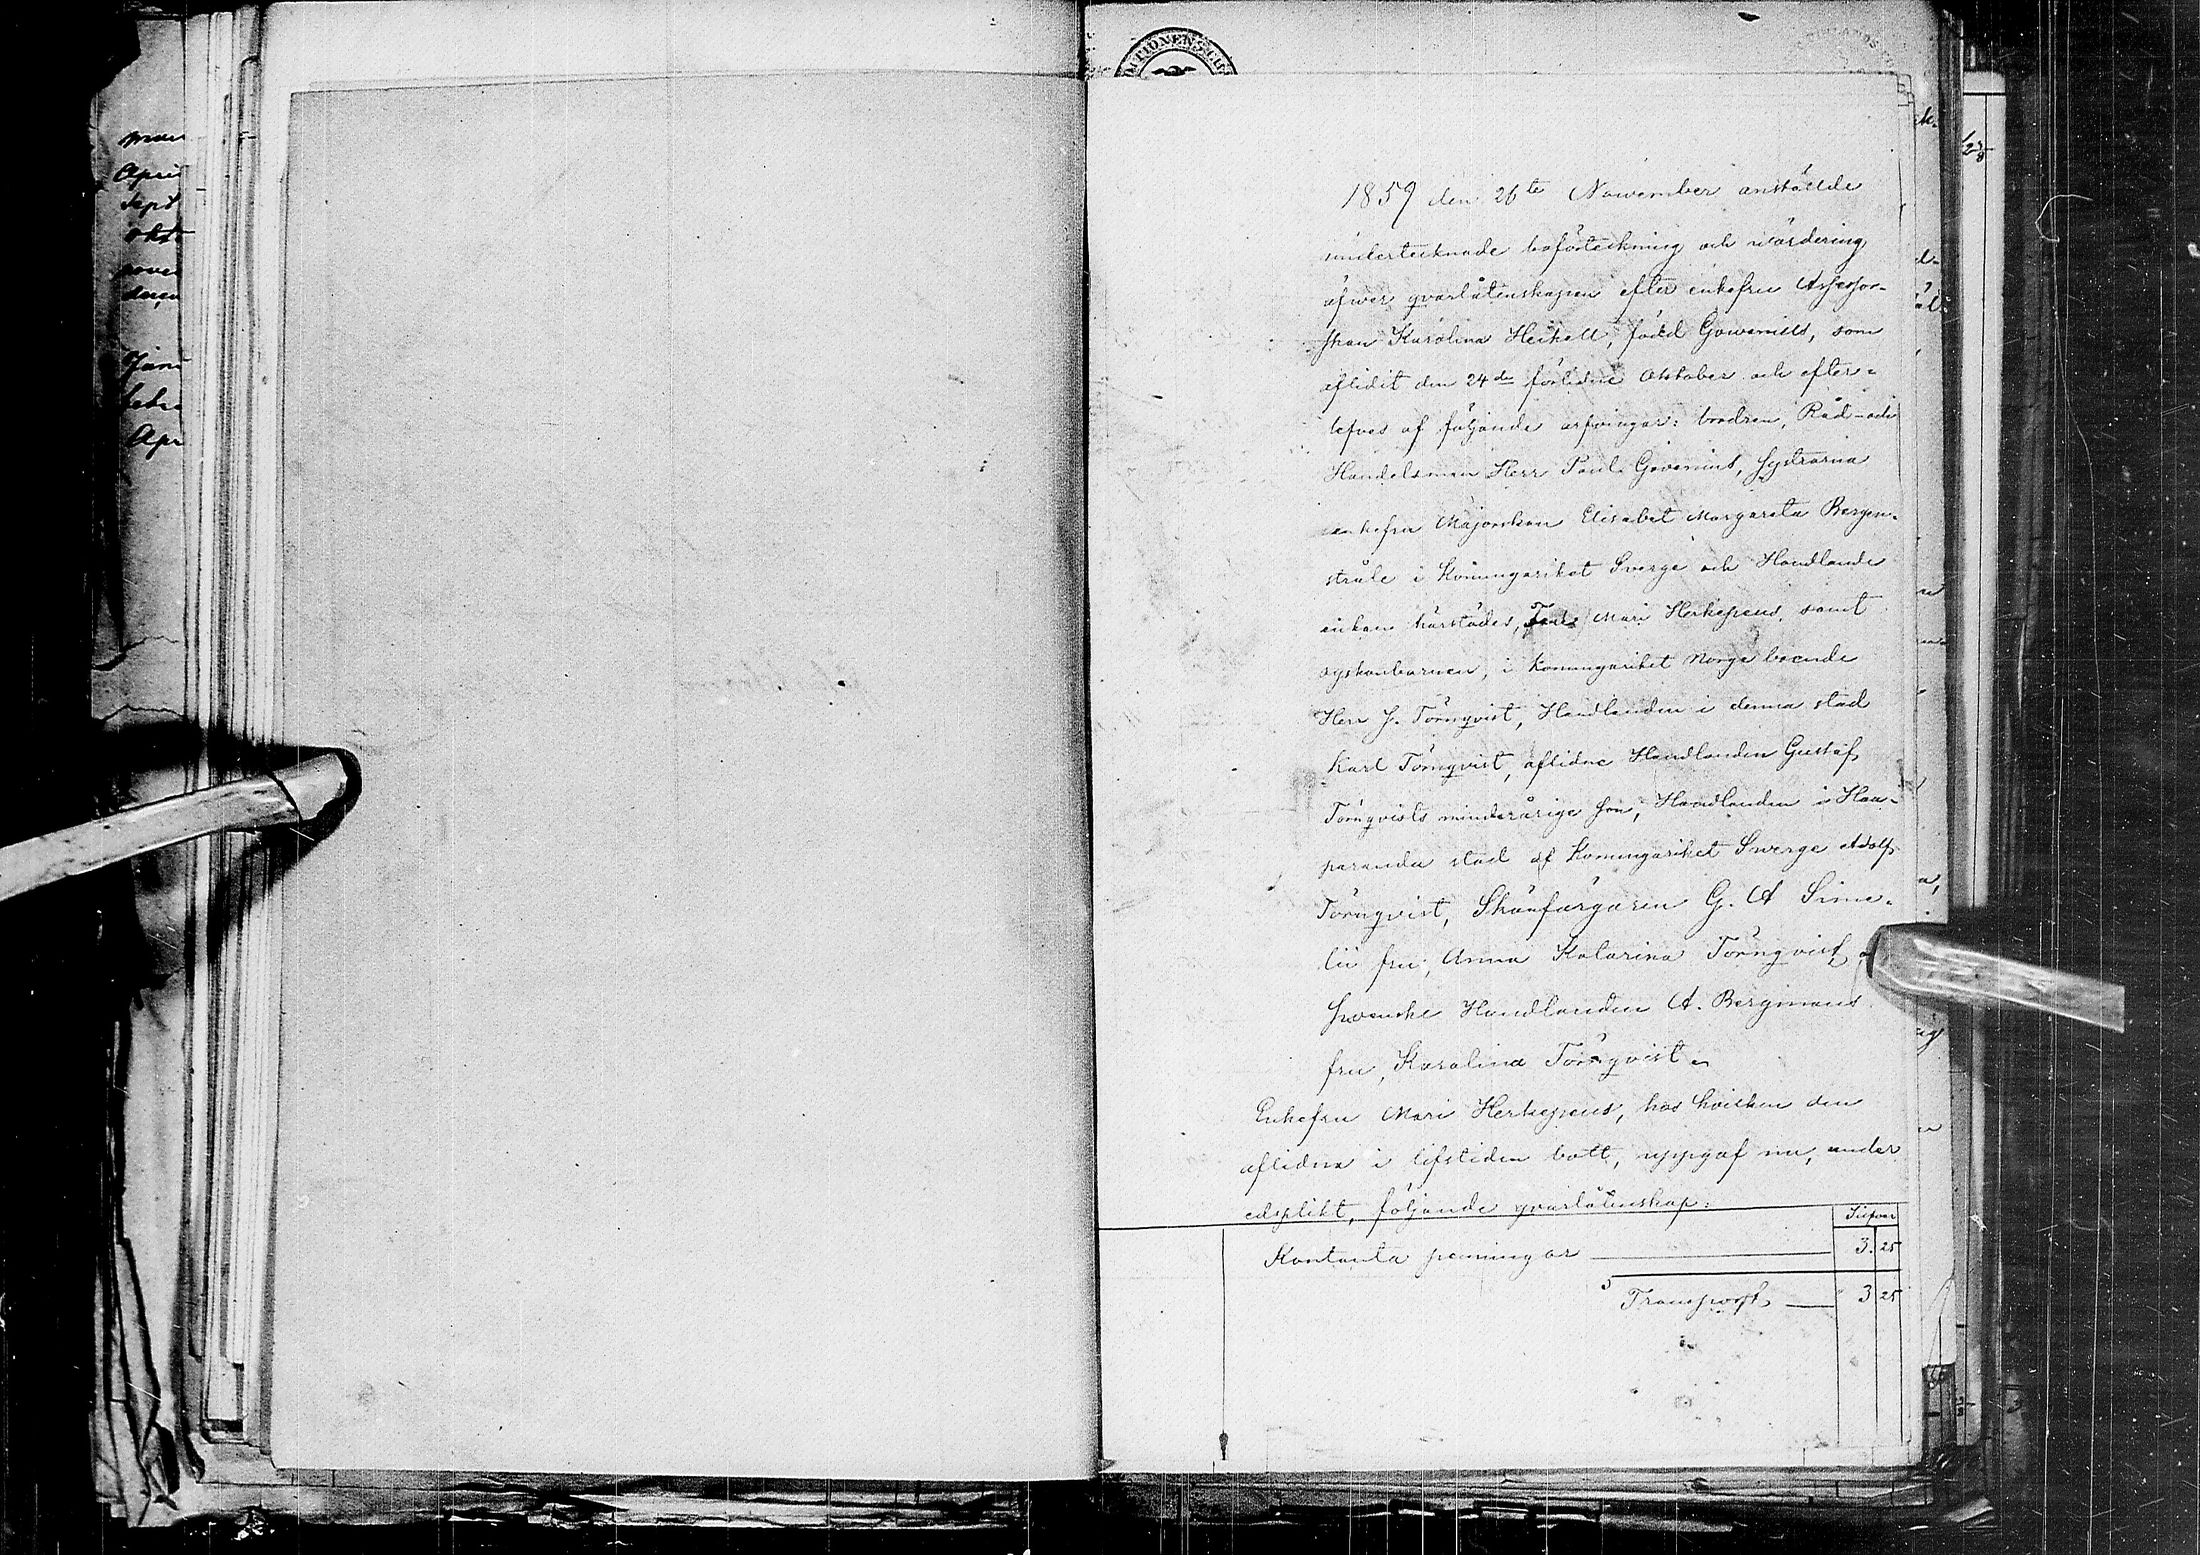 1859 den 26te November anställde
undertecknade boförteckning och värdering
öfwer qvarlåtenskapen efter enkefru Assessor-
skan Karolina Heikell, född Govenius, som
aflidit den 24de förlidne Oktober och efter-
lefves af följande arfvingar: brodren, Råd- och
Handelsman Herr Paul Govenius, systrarna
enkefru Majorskan Elisabet Margareta Bergen-
stråle i Konungariket Sverge och Handlande
enkan härstädes, Mari Herkepeus, samt
syskonbarnen, i Konungariket Norge boende
Herr J. Törnqvist, Handlanden i denna stad
Karl Törnqvist, aflidne Handlanden Gustaf
Törnqvists minderårige son, Handlanden i Haa-
paranda stad af Konungariket Swerge Adolf
Törnqvist, Skönfärgaren G. A Sime-
lii fru, Anna Katarina Törnqvist
Svenske Handlanden A. Bergmans
fru, Karolina Törnqvist.
Enkefru Mari Herkepeus, hos hvilken den
aflidna i lifstiden bott, uppgaf nu, under
edsplikt, följande qvarlåtenskap:
Silfver
Kontanta penningar 3. 25
Transport 3 25
mars
April
Sept
okto
nove
decem
Janu
Febru
Apr